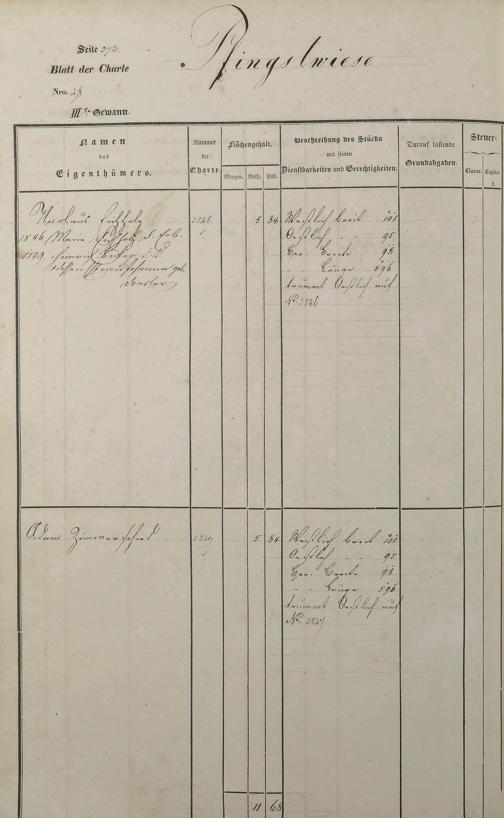 Seite 372.
Blatt der Charte
Nro. 48
IIIte Gewann.
Pfingstwiese
Namen
des
Eigenthümers.
Nummer
der
Charte
Flächengehalt.
Morgen. Ruth. Fuß.
Beschreibung des Stücks
mit seinen
Dienstbarkeiten und Gerechtigkeiten.
Darauf lastende
Grundabgaben.
Steuer-
Classe. Capital.
Nicolaus
1846 Marie
1899 Heinrich Becker
geb.
5 84
Westlich breit 101
Oestlich " " 95
Ger. Breite 98
" Länge 596
trummt Oestlich auf
No 3846
Adam Zimmer
5 84
Westlich breit 101
Oestlich " " 95
Ger. Breite 98
" " Länge 596
trummt Oestlich auf
No
11 68